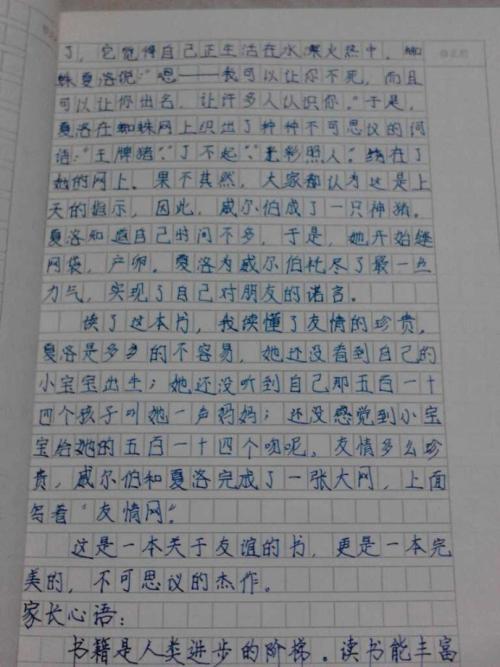 了，它觉得自己正生活在水深火热中。蜘
蛛夏洛说："嗯——我可以让你不死，而且
可以让你出名，让许多人认识你。"于是，
夏洛在蜘蛛网上织出了种种不可思议的词
语："王牌猪"、"了不起"、"光彩照人"。绕在了
她的网上。果不其然，大家都认为这是上
天的指示，因此，威尔伯成了一只神猪。
夏洛知道自己时间不多，于是，她开始缝
网袋，产卵。夏洛为威尔伯耗尽了最一丝
力气，实现了自己对朋友的诺言。
读了这本书，我读懂了友情的珍贵。
夏洛是多么的不容易，她还没看到自己的
小宝宝出生；她还没听到自己那五百一十
四个孩子叫她一声妈妈；还没感觉到小宝
宝给她的五百一十四个吻呢。友情多么珍
贵，威尔伯和夏洛完成了一张大网，上面
写着"友情网"。
这是一本关于友谊的书，更是一本完
美的，不可思议的杰作。
家长心语：
书籍是人类进步的阶梯。读书能丰富